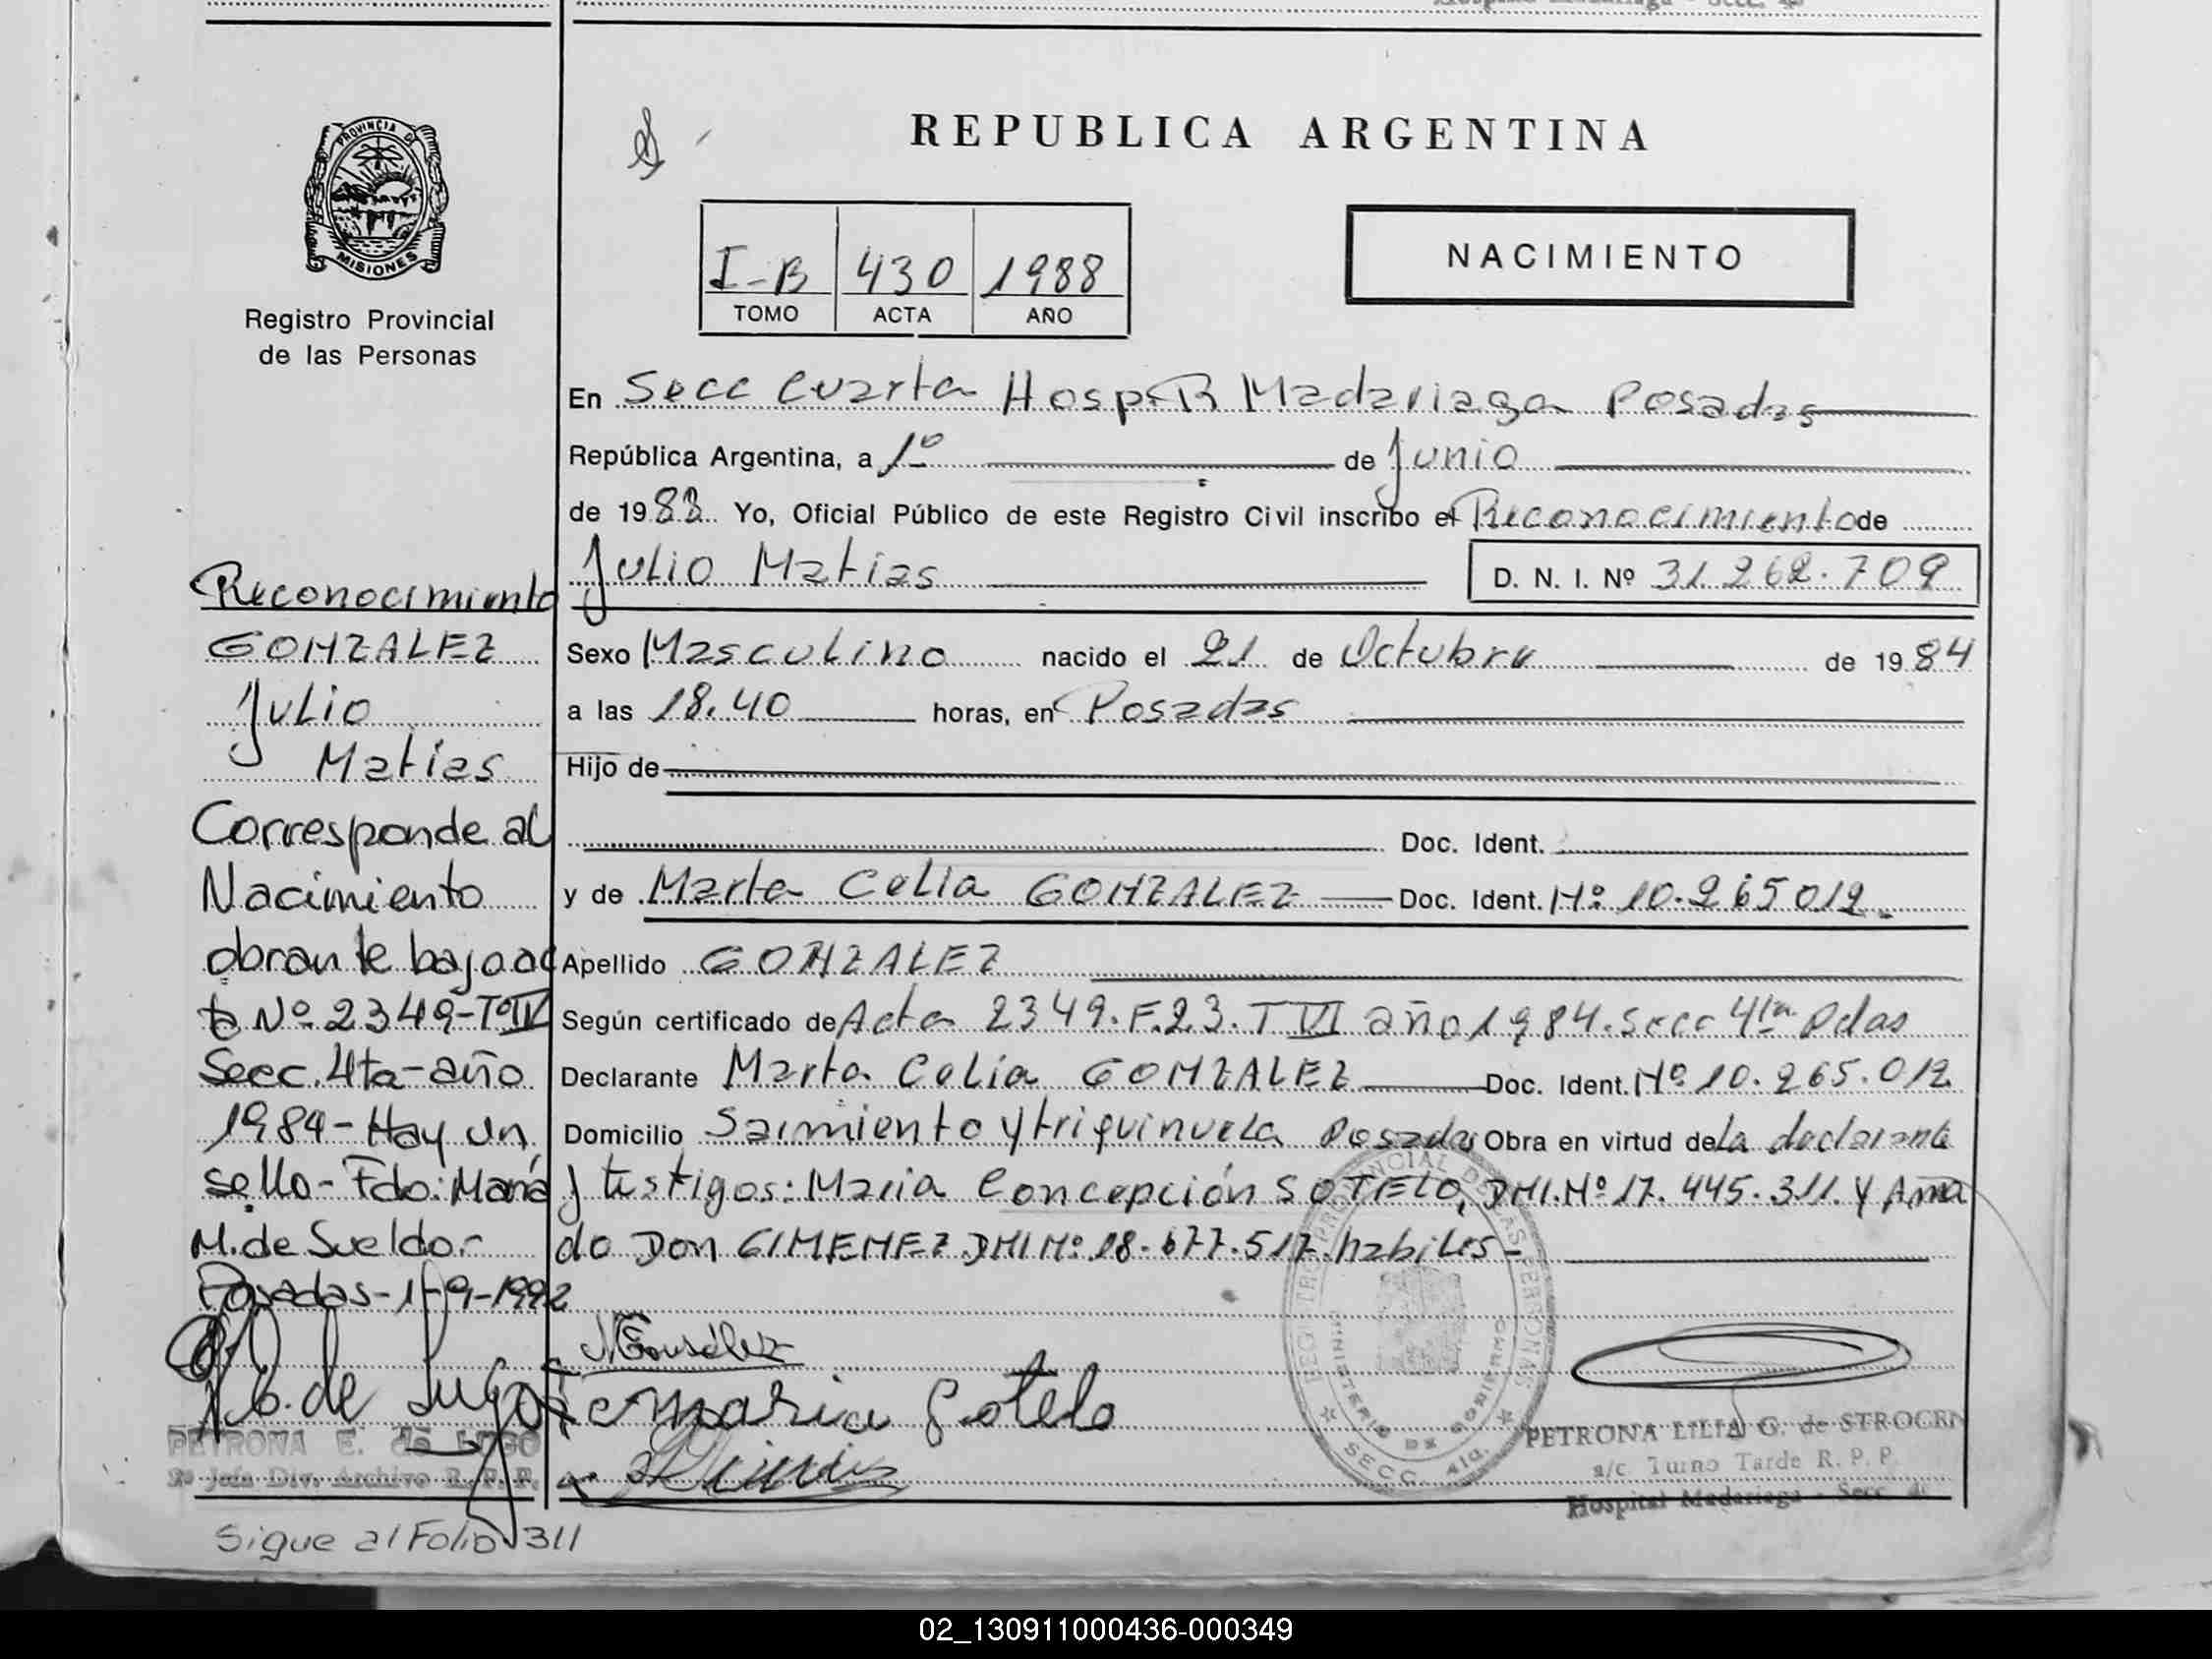 REPUBLICA ARGENTINA
PROVINCIA DE
MISIONES
Registro Provincial
de las Personas
I-B 430 1988
TOMO ACTA AÑO
NACIMIENTO
En Secc Cuarta Hosp. R Madariaga Posadas
República Argentina, a 1º de Junio
de 1988 Yo, Oficial Público de este Registro Civil inscribo el Reconocimiento de
Julio Matias D. N. I. Nº 31.262.709
Sexo Masculino nacido el 21 de Octubre de 1984
a las 18.40 horas, en Posadas
Hijo de
Doc. Ident.
y de Marta Celia GONZALEZ Doc. Ident. Nº 10.265012
Apellido GONZALEZ
Según certificado de Acta 2349.F.23.T VI año 1984.secc 4ta Pdas
Declarante Marta Celia GONZALEZ Doc. Ident. Nº 10.265.012
Domicilio Sarmiento y triquinuela Posadas Obra en virtud de La declarante
y testigos: Maria Concepción SOTELO, DNI.Nº 17.445.311. Y Ama
do Don GIMENEZ DNI Nº 18.677.517.habiles-
Reconocimiento
GONZALEZ
Julio
Matias
Corresponde al
Nacimiento
obrante bajo ac
ta Nº 2349-Tº IV
Secc. 4ta-año
1984-Hay un
sello-Fdo: María
M. de Sueldo.-
Posadas-1-9-1992
de Lugo
PETRONA E. de LUGO
2º Jefa Div. Archivo R. P. P.
M González
maria Sotelo
REGISTRO PROVINCIAL DE LAS PERSONAS
MINISTERIO DE GOBIERNO
SECC. 4ta.
PETRONA LILIA G. de STROCEN
a/c Turno Tarde R. P. P.
Hospital Madariaga - Secc. 4ª
Sigue al Folio 311
02_130911000436-000349